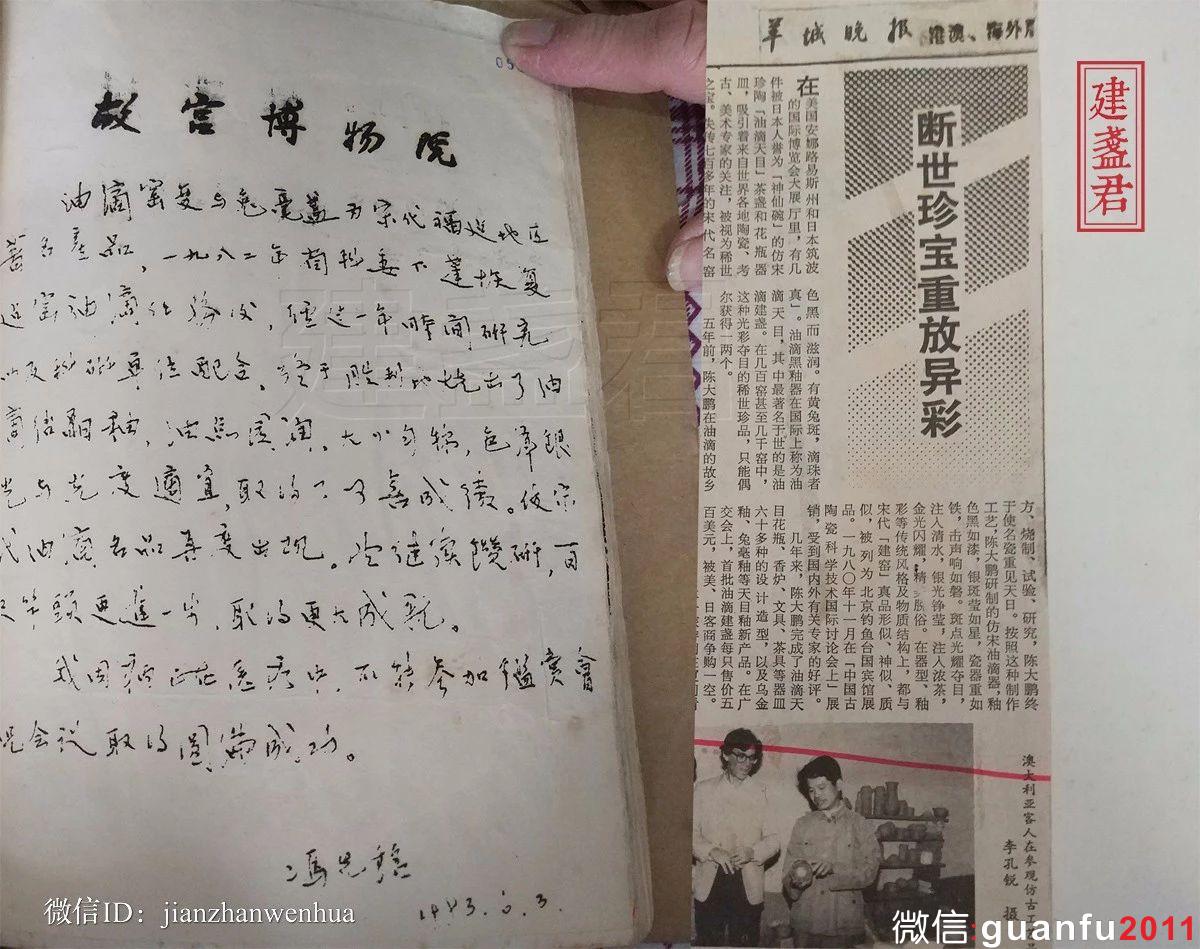 故宫博物院
油滴窑变与兔毫盏为宋代福建地区
著名产品，一九八二年
油滴任务后，经过一年時間研究
以及科研单位配合，终于胜利地烧出了油
滴结晶釉，油点圆润，大小匀称，色泽银
光与光度適宜，取得了可喜成績。使宋
代油滴名品再度出现。继续鑽研，百
尺竿頭更進一步，取得更大成就。
我因病正在医疗中，不能参加鑑會
祝会议取得圆满成功。
冯先铭
1983.6.3.
微信ID：jianzhanwenhua
羊城晚报 港澳、海外
断世珍宝重放异彩
在美国安娜路易斯州和日本筑波
的国际博览会大展厅里，有几
件被日本人誉为「神仙碗」的仿宋
珍陶「油滴天目」茶盏和花瓶器
皿，吸引着来自世界各地陶瓷、考
古、美术专家的关注，被视为稀世
之宝。失传七百多年的宋代名窑
色黑而滋润。有黄兔斑，滴珠者
真」。油滴黑釉器在国际上称为油
滴天目，其中最著名于世的是油
滴建盏。在几百窑甚至几千窑中，
这种光彩夺目的稀世珍品，只能偶
尔获得一两个。
五年前，陈大鹏在油滴的故乡
方、烧制、试验、研究，陈大鹏终
于使名瓷重见天日。按照这种制作
工艺，陈大鹏研制的仿宋油滴器，釉
色黑如漆，银斑莹如星，瓷器重如
铁，击声响如磬。斑点光耀夺目，
注入清水，银光铮莹，注入浓茶，
金光闪耀，精脱俗。在器型、釉
彩等传统风格及物质结构上，都与
宋代「建窑」真品形似、神似、质
似，被列为北京钓鱼台国宾馆展
品。一九八〇年十一月在「中国古
陶瓷科学技术国际讨论会上」展
销，受到国内外有关专家的好评。
几年来，陈大鹏完成了油滴天
目花瓶、香炉、文具、茶具等器皿
六十多种的设计造型，以及乌金
釉、兔毫釉等天目釉新产品。在广
交会上，首批油滴建盏每只售价五
百美元，被美、日客商争购一空。
澳大利亚客人在参观仿古工
李孔锐 摄
建盏君
建盏君
微信:guanfu2011